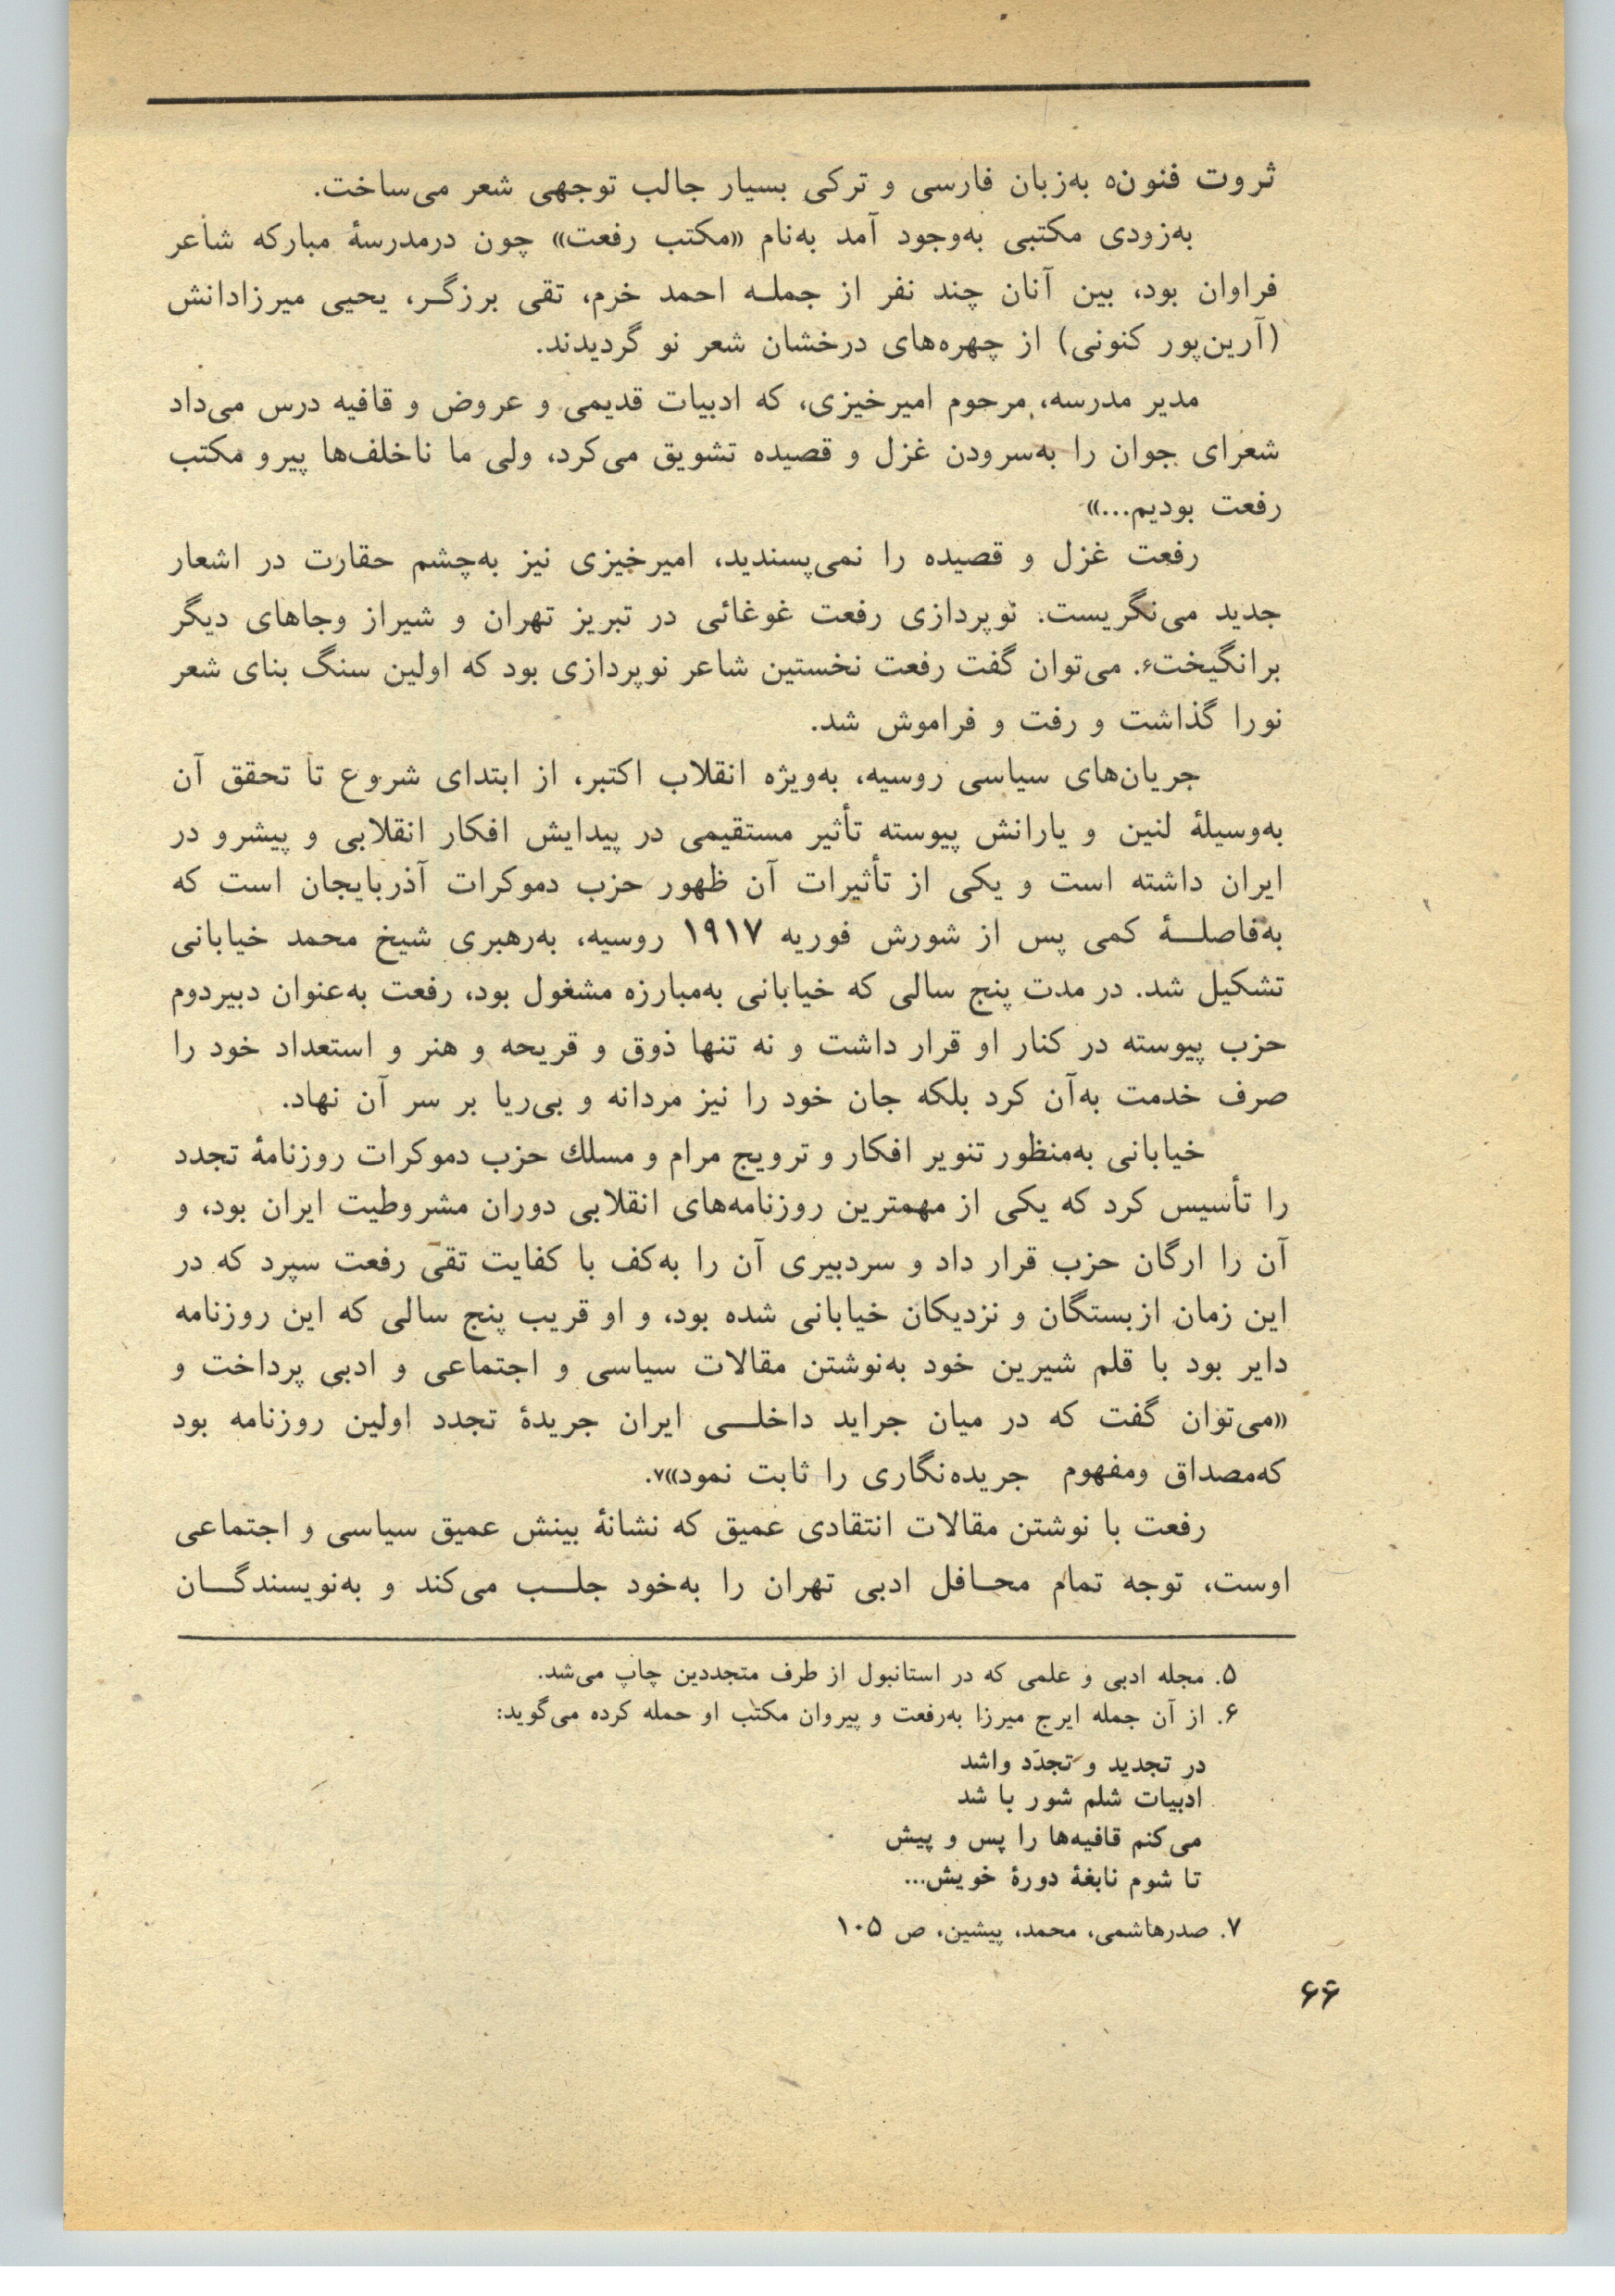 ثروت فنون۵ به‌زبان فارسی و ترکی بسیار جالب توجهی شعر می‌ساخت.
به‌زودی مکتبی به‌وجود آمد به‌نام «مکتب رفعت» چون درمدرسهٔ مبارکه شاعر
فراوان بود، بین آنان چند نفر از جملـه احمد خرم، تقی برزگـر، یحیی میرزادانش
(آرین‌پور کنونی) از چهره‌های درخشان شعر نو گردیدند.
مدیر مدرسه، مرحوم امیرخیزی، که ادبیات قدیمی و عروض و قافیه درس می‌داد
شعرای جوان را به‌سرودن غزل و قصیده تشویق می‌کرد، ولی ما ناخلف‌ها پیرو مکتب
رفعت بودیم...»
رفعت غزل و قصیده را نمی‌پسندید، امیرخیزی نیز به‌چشم حقارت در اشعار
جدید می‌نگریست. نوپردازی رفعت غوغائی در تبریز تهران و شیراز وجاهای دیگر
برانگیخت۶. می‌توان گفت رفعت نخستین شاعر نوپردازی بود که اولین سنگ بنای شعر
نورا گذاشت و رفت و فراموش شد.
جریان‌های سیاسی روسیه، به‌ویژه انقلاب اکتبر، از ابتدای شروع تا تحقق آن
به‌وسیلهٔ لنین و یارانش پیوسته تأثیر مستقیمی در پیدایش افکار انقلابی و پیشرو در
ایران داشته است و یکی از تأثیرات آن ظهور حزب دموکرات آذربایجان است که
به‌فاصلـــهٔ کمی پس از شورش فوریه ۱۹۱۷ روسیه، به‌رهبری شیخ محمد خیابانی
تشکیل شد. در مدت پنج سالی که خیابانی به‌مبارزه مشغول بود، رفعت به‌عنوان دبیردوم
حزب پیوسته در کنار او قرار داشت و نه تنها ذوق و قریحه و هنر و استعداد خود را
صرف خدمت به‌آن کرد بلکه جان خود را نیز مردانه و بی‌ریا بر سر آن نهاد.
خیابانی به‌منظور تنویر افکار و ترویج مرام و مسلك حزب دموکرات روزنامهٔ تجدد
را تأسیس کرد که یکی از مهمترین روزنامه‌های انقلابی دوران مشروطیت ایران بود، و
آن را ارگان حزب قرار داد و سردبیری آن را به‌کف با کفایت تقی رفعت سپرد که در
این زمان ازبستگان و نزدیکان خیابانی شده بود، و او قریب پنج سالی که این روزنامه
دایر بود با قلم شیرین خود به‌نوشتن مقالات سیاسی و اجتماعی و ادبی پرداخت و
«می‌توان گفت که در میان جراید داخلـــی ایران جریدهٔ تجدد اولین روزنامه بود
که‌مصداق ومفهوم جریده‌نگاری را ثابت نمود»۷.
رفعت با نوشتن مقالات انتقادی عمیق که نشانهٔ بینش عمیق سیاسی و اجتماعی
اوست، توجه تمام محـافل ادبی تهران را به‌خود جلـــب می‌کند و به‌نویسندگـــان
۵. مجله ادبی و علمی که در استانبول از طرف متجددین چاپ می‌شد.
۶. از آن جمله ایرج میرزا به‌رفعت و پیروان مکتب او حمله کرده می‌گوید:
در تجدید و تجدّد واشد
ادبیات شلم شور با شد
می‌کنم قافیه‌ها را پس و پیش
تا شوم نابغهٔ دورهٔ خویش...
۷. صدرهاشمی، محمد، پیشین، ص ۱۰۵
۶۶